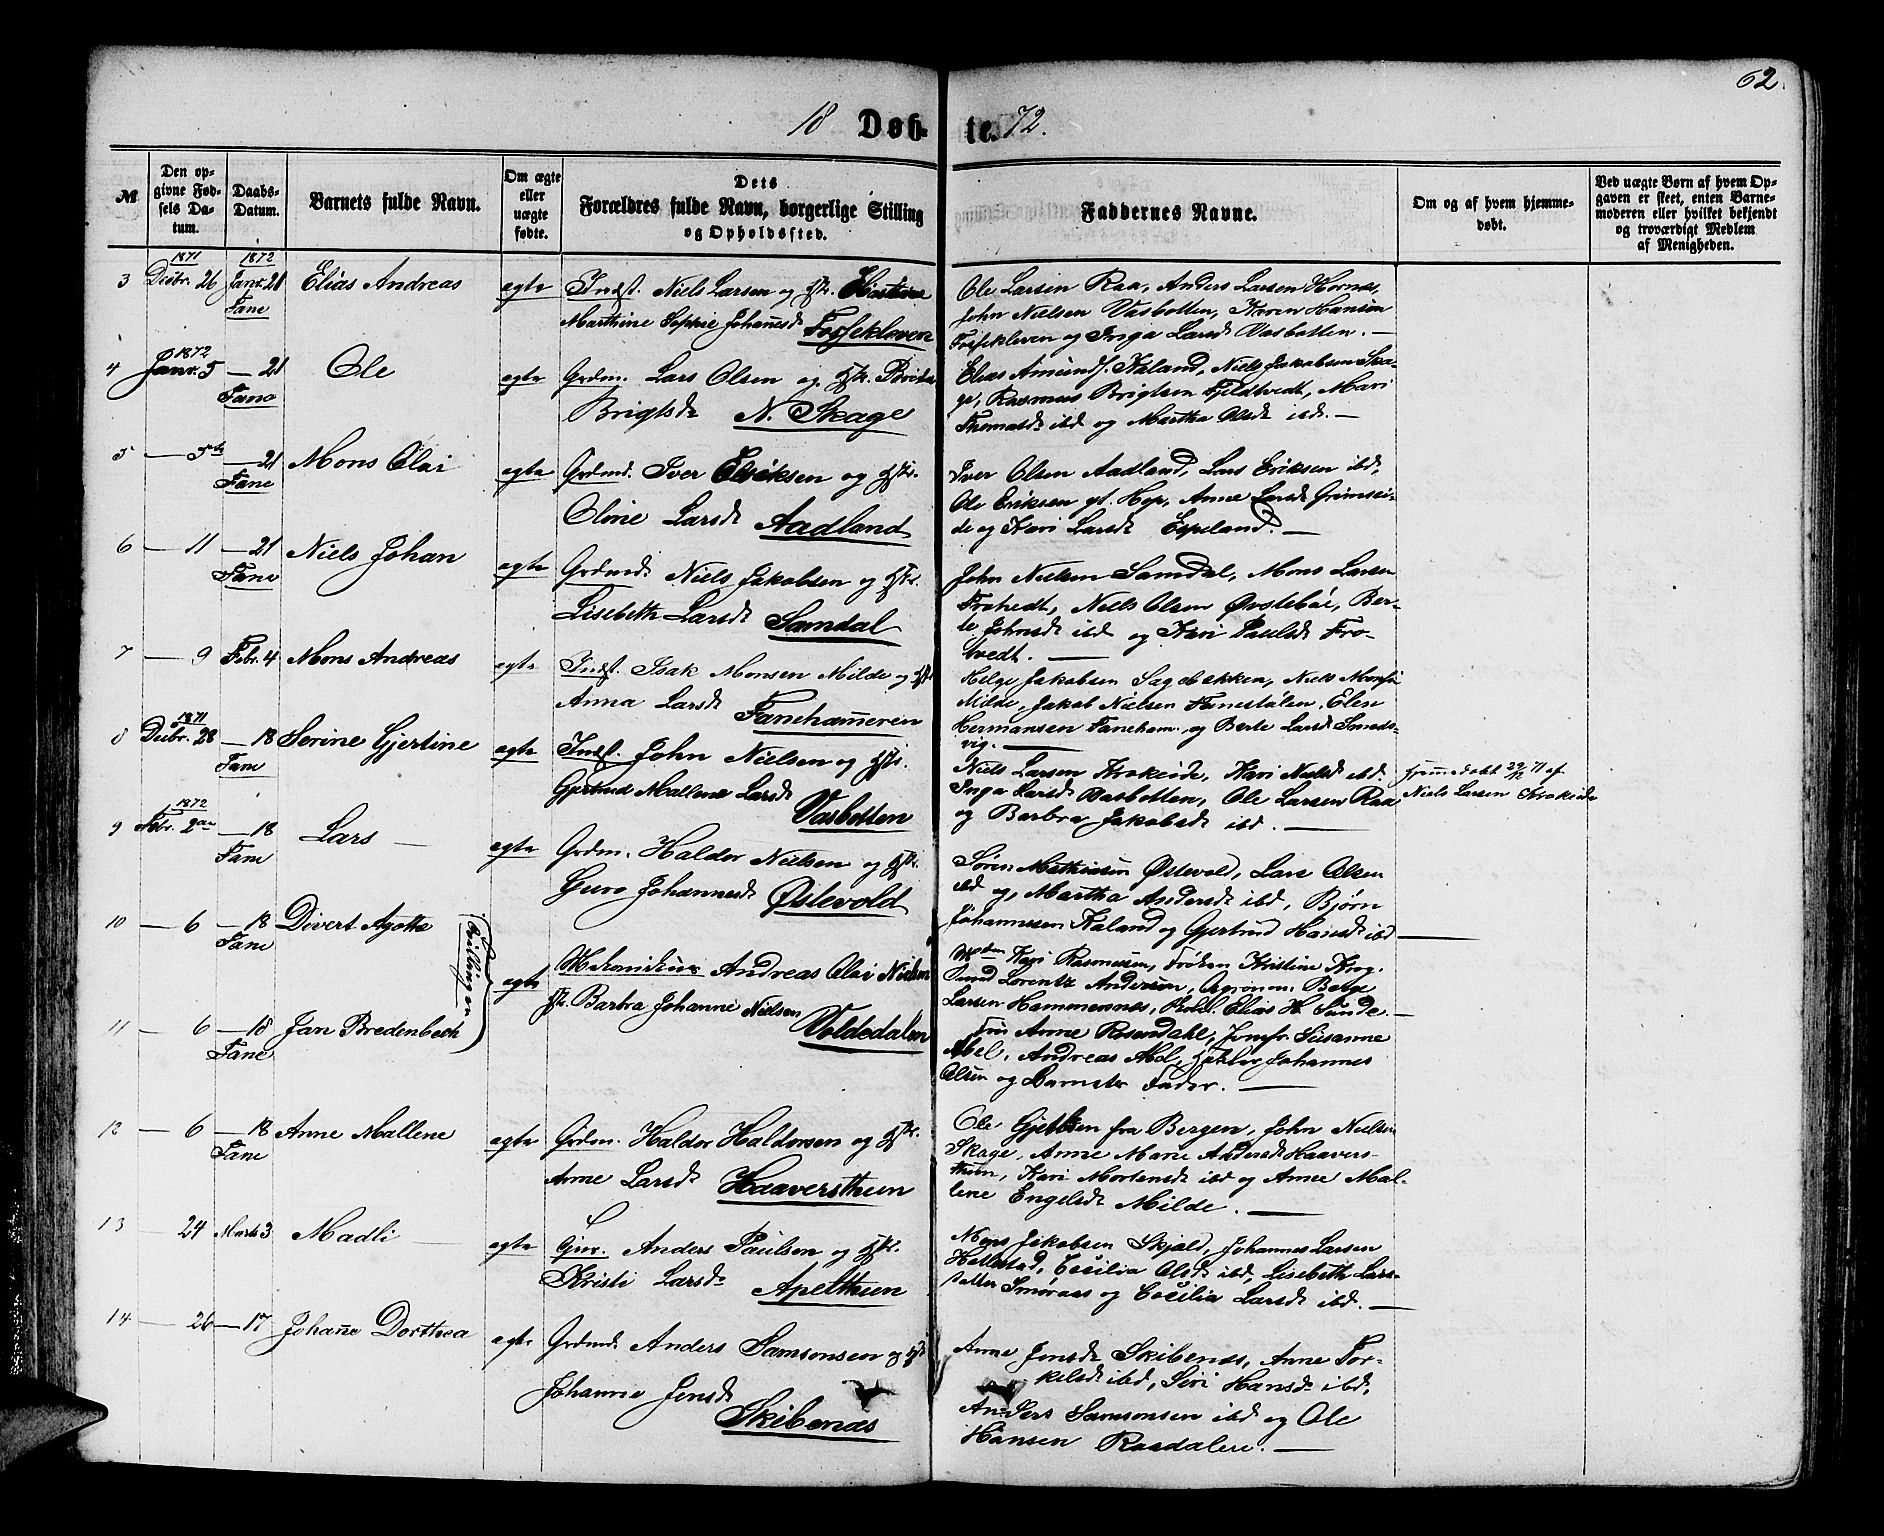 62.
18 Døb- te. 72.
№
Den opgivne Fødsels Datum.
Daabs-Datum.
Barnets fulde Navn.
Om ægte eller uægte fødte.
Dets Forældres fulde Navn, borgerlige Stilling og Opholdssted.
Faddernes Navne.
Om og af hvem hjemmedøbt.
Ved uægte Børn af hvem Opgaven er skeet, enten Barnemoderen eller hvilket bekjendt og troværdigt Medlem af Menigheden.
1871 1872
3 Decbr. 26 Janr. 21 Elias Andreas egte Indst. Niels Larsen og Hstr.
Fane Marthine Sophie Johannesdr Fosseklevene
Ole Larsen Raa, Anders Larsen Hornæs,
John Nielsen Vasbotten, Karen Hansen
Fosseklevene og Inga Larsdr Vasbotten. —
1872
4 Janr. 5 — 21 Ole egte Grdm. Lars Olsen og Hstr. Brita
Fane Brigtsdr N. Skage
Elias Amunds. Kaland, Niels Jakobsen Ska-
ge, Rasmus Brigtsen Fjeldtvedt, Mari
Thomasdr ibd og Martha Olsdr ibd. —
5 — 5te — 21 Mons Olai egte Grdmd. Iver Eriksen og Hstr.
Fane Oline Larsdr Aadland
Iver Olsen Aadland, Lars Eriksen ibd,
Ole Eriksen yt. Hop, Anne Larsdr Grimsei-
de og Kari Larsdr Espeland. —
6 — 11 — 21 Niels Johan egte Grdmd. Niels Jakobsen og Hstr.
Fane Lisebeth Larsdr Samdal
John Nielsen Samdal, Mons Larsen
Frotvedt, Niels Olsen Øvstebøe, Ber-
te Johnsdr ibd og Kari Paulsdr Fro-
tvedt. —
7 — 9 Febr. 4 Mons Andreas egte Indst. Isak Monsen Milde og Hstr
Anna Larsdr Fanehammeren
Helge Jakobsen Sagbekken, Niels Monsen
Milde, Jakob Nielsen Fanestølen, Elen
Hermansen Faneham. og Berte Larsdr Smeds-
vig. —
1871
8 Decbr. 28 — 18 Serine Gjertine egte Indst. John Nielsen og Hstr.
Fane Gjertrud Mallene Larsdr
Vasbotten
Niels Larsen Krokeide, Kari Nielsdr ibd.
Inga Larsdr Vasbotten, Ole Larsen Raa
og Barbra Jakobsdr ibd. —
hjemmedøbt 29/12 71 af
Niels Larsen Krokeide
1872
9 Febr. 2den — 18 Lars — egte Grdm. Haldor Nielsen og Hstr.
Fane Guro Johannesdr Østevold
Søren Mathiesen Østevold, Lars Olsen
ibd og Martha Andersdr ibd, Bjørn
Johannessen Kaland og Gjertrud Hansdr ibd
10 — 6 — 18 Divert Agotta
Fane
Tvillinger
egte Mekanikus Andreas Olai Nielsen
Hstr. Barbra Johanne Nielsen
Voldedalen
Kari Rasmussen, Frøken Kristine Krog.
Lorentz Andersen, Agronom Berge
Larsen Hammersnes, Elias H. Sunde. —
11 — 6 — 18 Jan Bredenbech
Fane
Fru Anne Rosendahl, Jomfr. Susanne
Abel, Andreas Abel, Johannes
Olsen og Barnets Fader. —
12 — 6 — 18 Anne Mallene egte Grdm. Haldor Haldorsen og Hstr.
Fane Anne Larsdr Haaversthun
Ole Gjertsen fra Bergen, John Nielsen
Skage, Anne Marie Andersdr Haavers-
thun, Kari Mortensdr ibd og Anne Mal-
lene Engelsdr Milde. —
13 — 24 Marts 3 Madli — egte Gur. Anders Paulsen og Hstr.
Kristi Larsdr Apelthun
Mons Jakobsen Skjold, Johannes Larsen
Hallestad, Cecilia Olsdr ibd, Lisebeth Lars-
datter Smøraas og Cecilia Larsdr ibd. —
14 — 26 — 17 Johanne Dorthea egte Grdmd. Anders Samsonsen og Hstr
Johanne Jensdr
Skibenæs
Anne Jensdr Skibenæs, Anne Tor-
kelsdr ibd, Siri Hansdr ibd,
Anders Samsonsen ibd og Ole
Hansen Raadalen. —